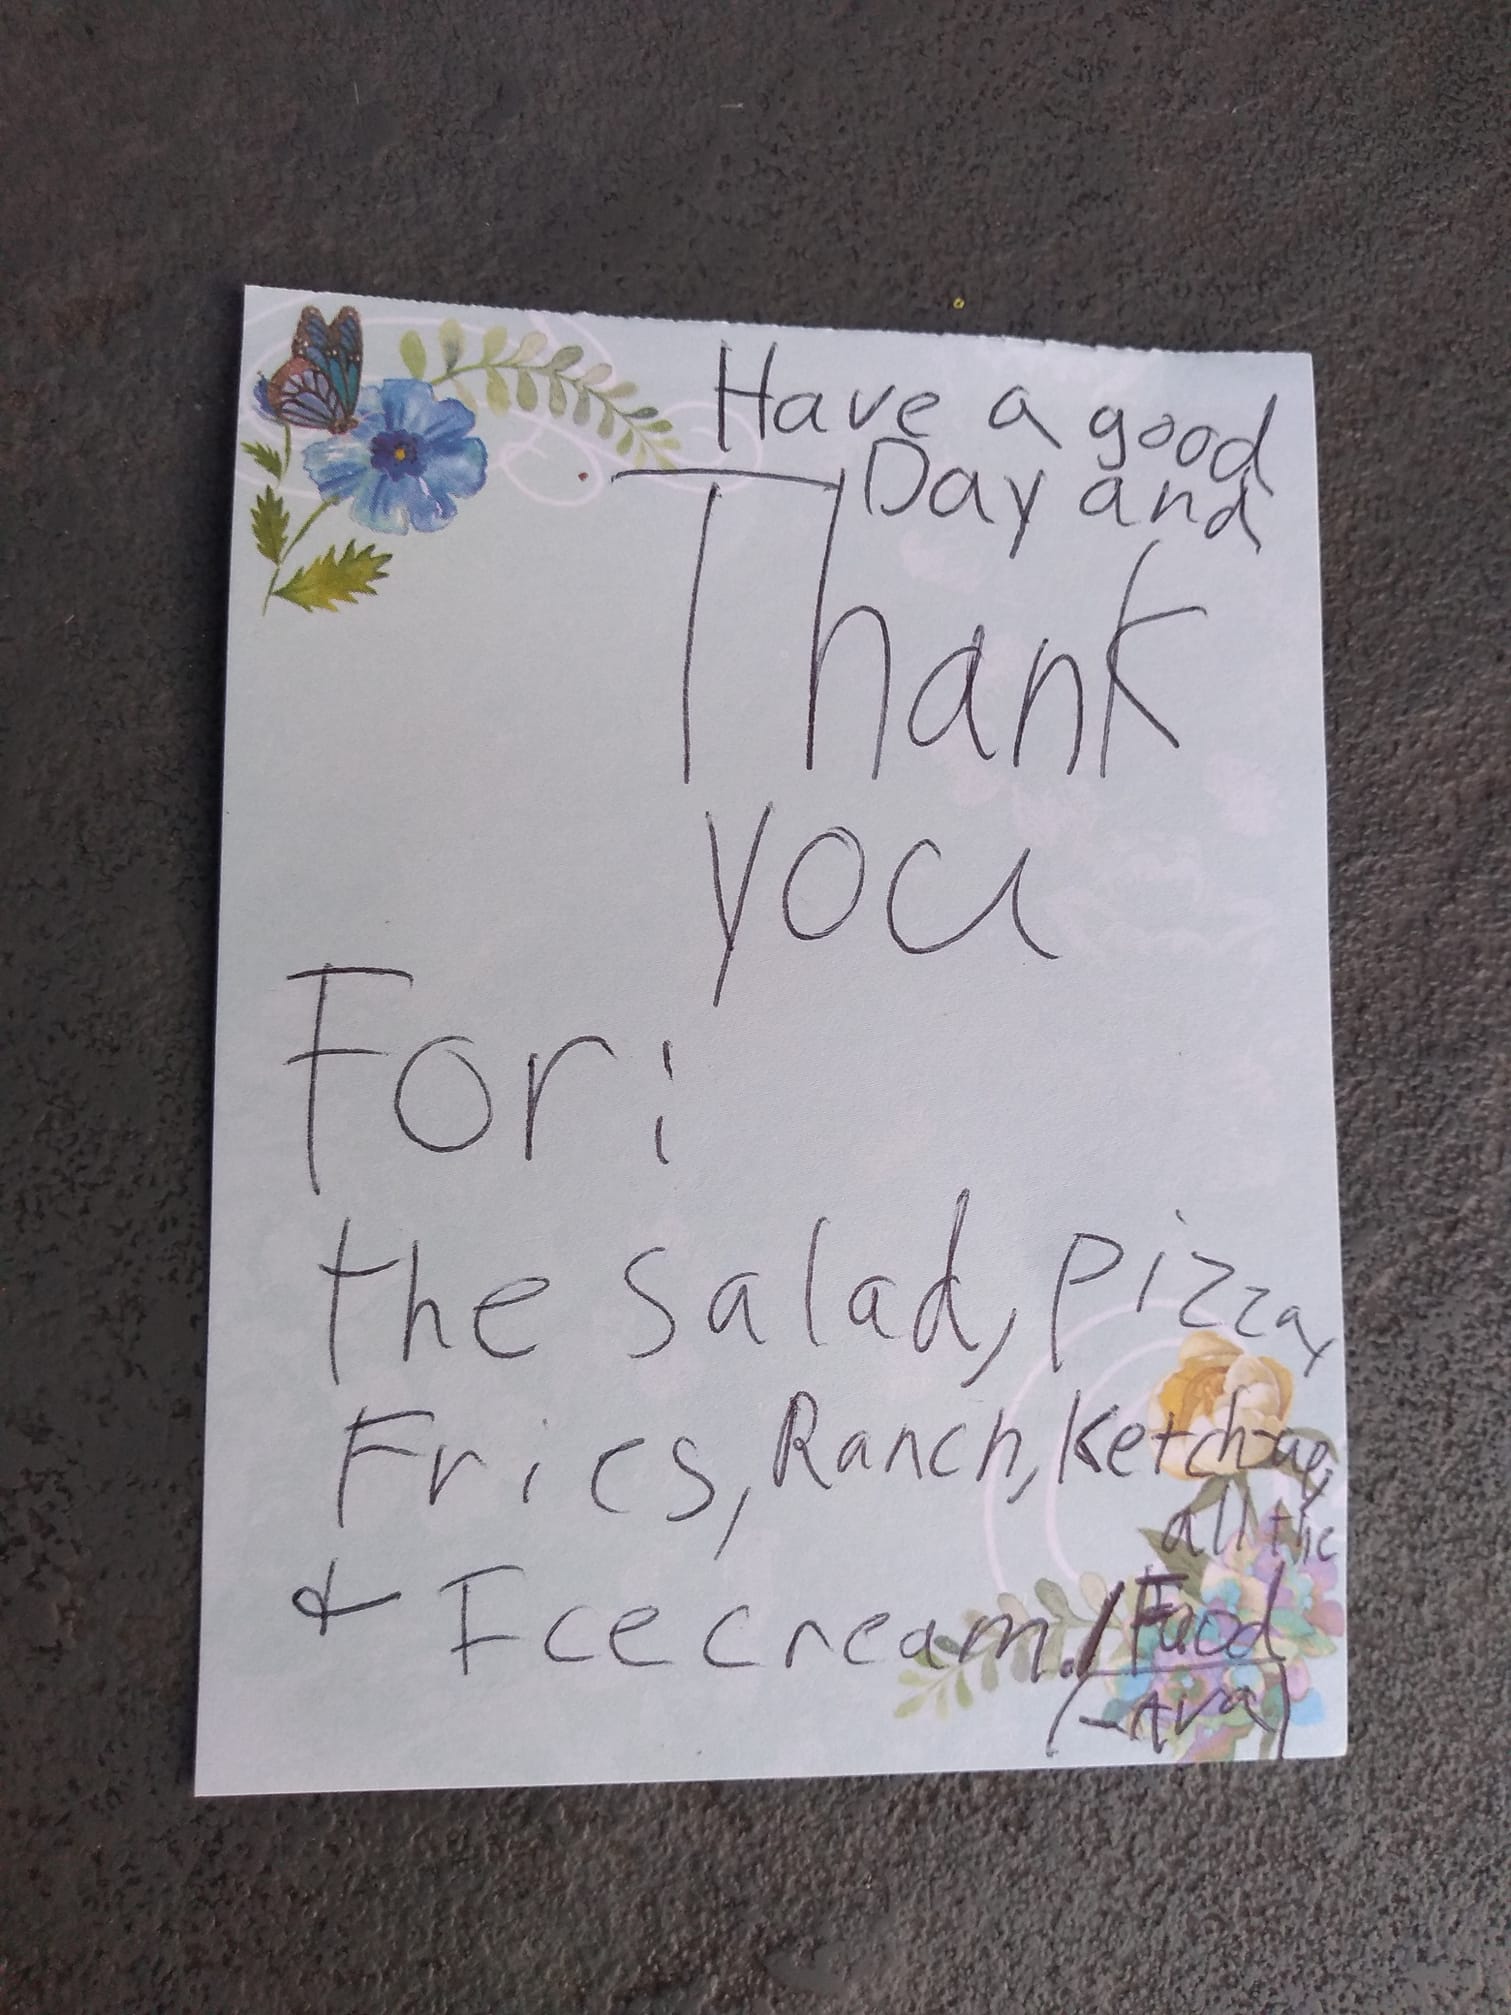 Have a good
Day and
Thank
you
For:
the salad, pizza,
Fries, Ranch, Ketchup,
& Ice cream./
all the
Food
(-Ava)